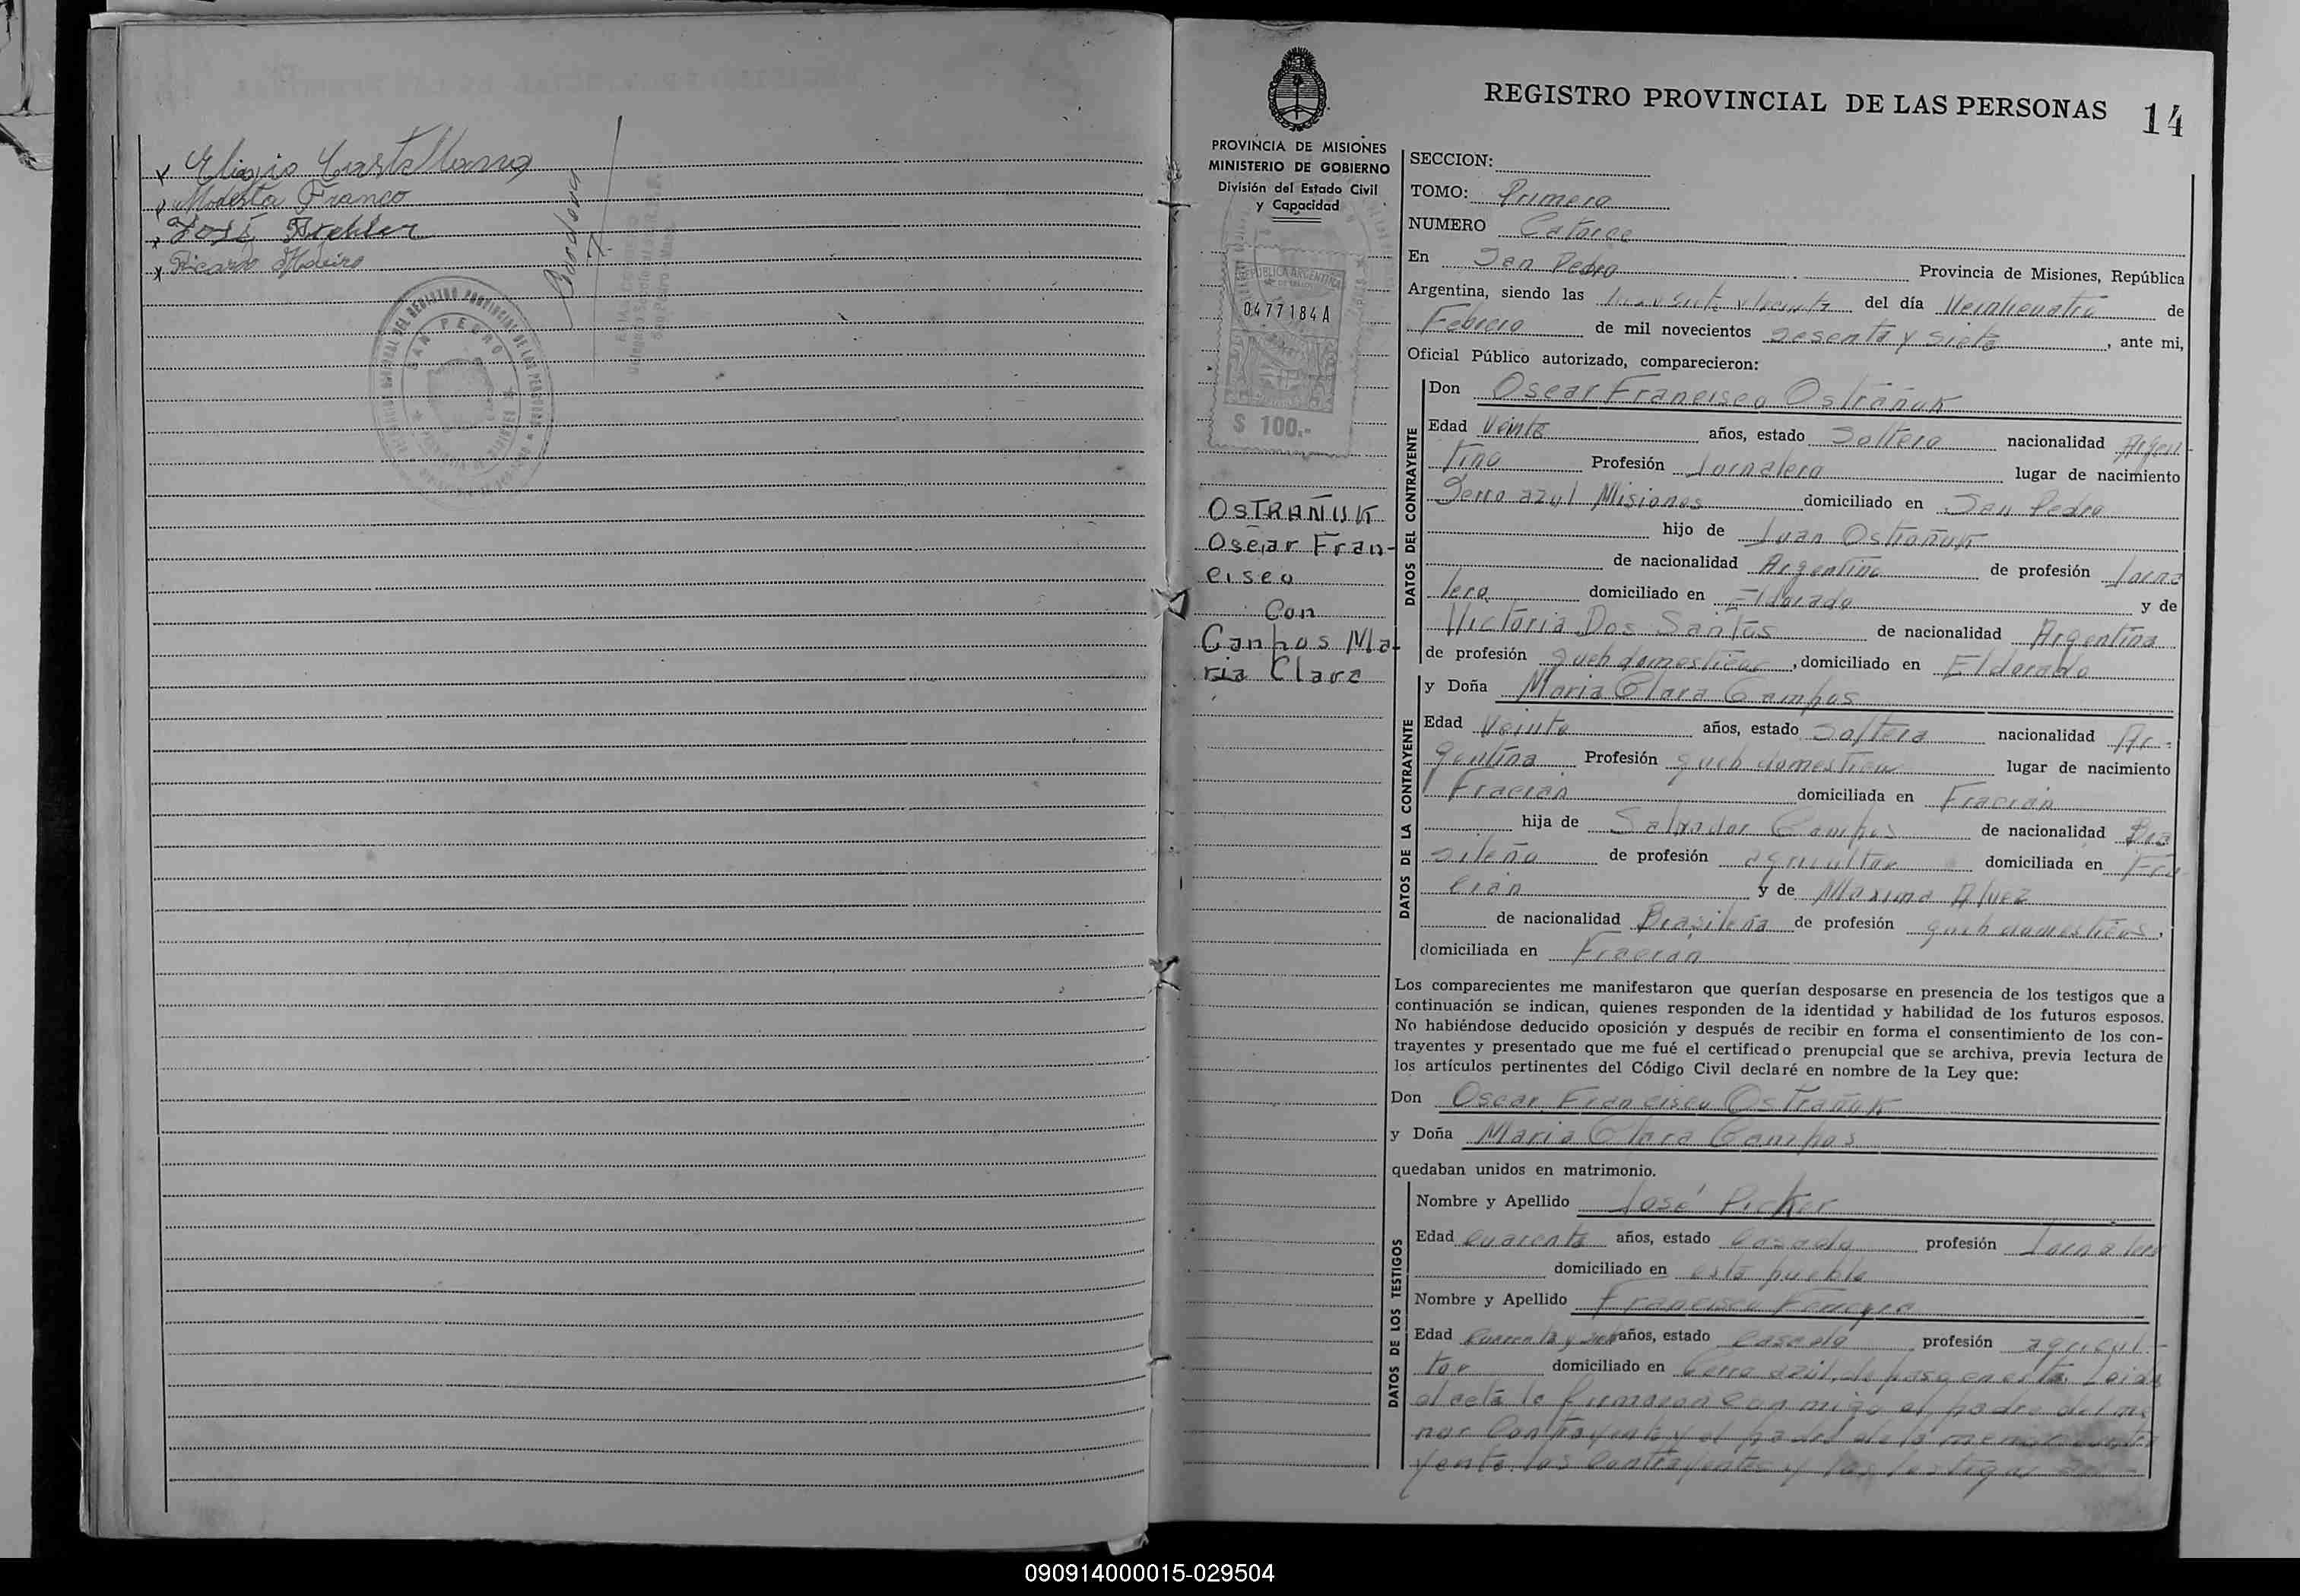 Eligio Castellano
Modesta Franco
José
Ricardo
SAN PEDRO
REGISTRO PROVINCIAL DE LAS PERSONAS 14
PROVINCIA DE MISIONES
MINISTERIO DE GOBIERNO
División del Estado Civil
y Capacidad
REPUBLICA ARGENTINA
0477184A
$ 100.-
OSTRAÑUK
Oscar Fran-
cisco
Con
Camhos Ma-
ria Clara
SECCION:
TOMO: Primero
NUMERO Catorce
En San Pedro Provincia de Misiones, República
Argentina, siendo las del día Veinticuatro de
Febrero de mil novecientos sesenta y siete, ante mi,
Oficial Público autorizado, comparecieron:
DATOS DEL CONTRAYENTE
Don Oscar Francisco Ostrañuk
Edad Veinte años, estado Soltero nacionalidad Argen-
tino Profesión Jornalero lugar de nacimiento
Serro azul Misiones domiciliado en San Pedro
hijo de Juan Ostrañuk
de nacionalidad Argentino de profesión Jorna
lero domiciliado en Eldorado y de
Victoria Dos Santos de nacionalidad Argentina
de profesión queh domesticos, domiciliado en Eldorado
DATOS DE LA CONTRAYENTE
y Doña Maria Clara Camhos
Edad Veinte años, estado Soltera nacionalidad Ar-
gentina Profesión queh domesticos lugar de nacimiento
Fracrán domiciliada en Fracrán
hija de Salvador Camhos de nacionalidad Bra
sileño de profesión agricultor domiciliada en Fra-
crán y de Maxima Alvez
de nacionalidad Brasileña de profesión queh domesticos,
domiciliada en Fracrán
Los comparecientes me manifestaron que querían desposarse en presencia de los testigos que a
continuación se indican, quienes responden de la identidad y habilidad de los futuros esposos.
No habiéndose deducido oposición y después de recibir en forma el consentimiento de los con-
trayentes y presentado que me fué el certificado prenupcial que se archiva, previa lectura de
los artículos pertinentes del Código Civil declaré en nombre de la Ley que:
Don Oscar Francisco Ostrañuk
y Doña Maria Clara Camhos
quedaban unidos en matrimonio.
DATOS DE LOS TESTIGOS
Nombre y Apellido José Picker
Edad cuarenta años, estado Casado profesión Jornalero
domiciliado en este pueblo
Nombre y Apellido Francisco Ferreyra
Edad cuarenta y siete años, estado casado profesión agricul-
tor domiciliado en Cerro azul, de paso en esta. Leida
el acta la firmaron conmigo el padre del me
nor contrayente y el padre de la menor contra
yente. los contrayentes y los testigos
090914000015-029504